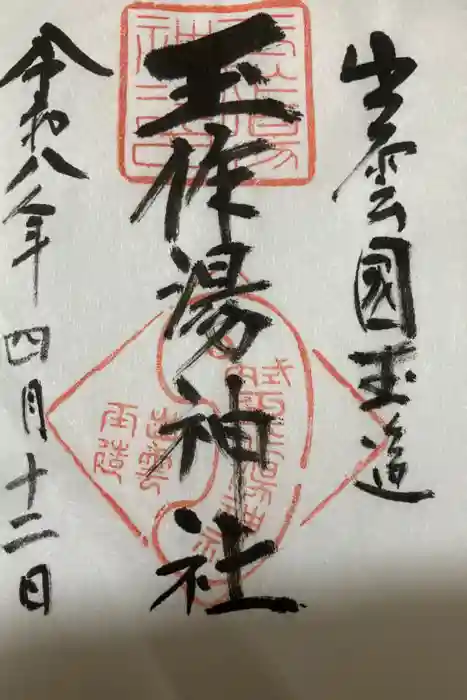 出雲國玉造
玉作湯神社
令和八年四月十二日
出雲
玉造